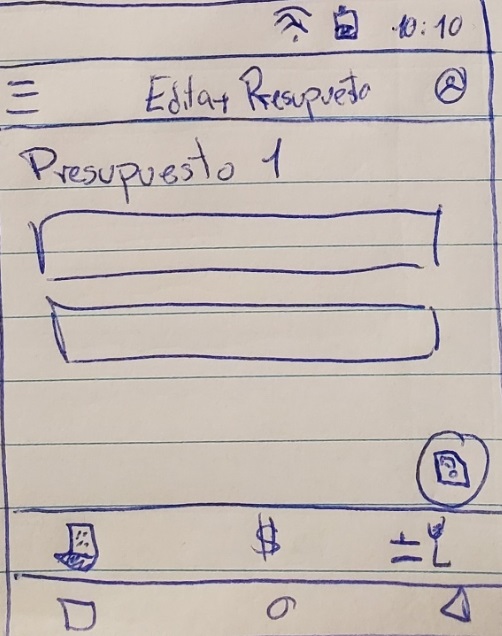 10:10
Editar Presupuesto
Presupuesto 1
$